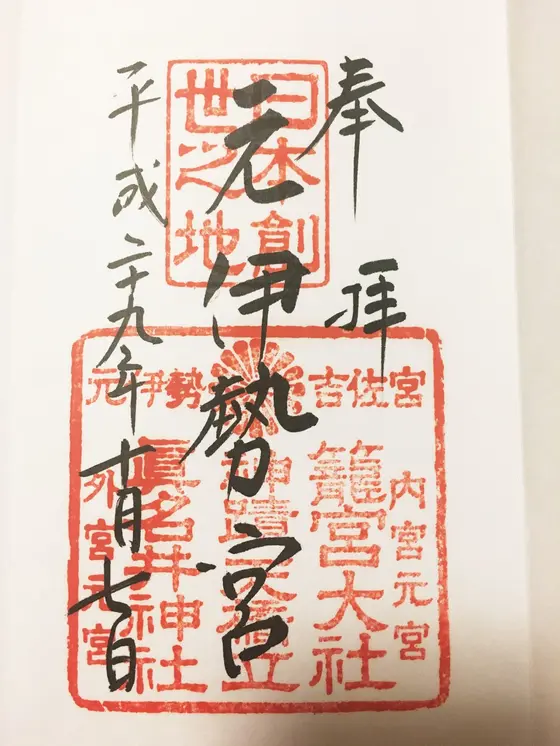 奉拝
元伊勢宮
平成二十九年十月七日
日本創
世之地
元伊勢 吉佐宮
内宮元宮
籠宮大社
神蹟天橋立
眞名井神社
外宮元宮